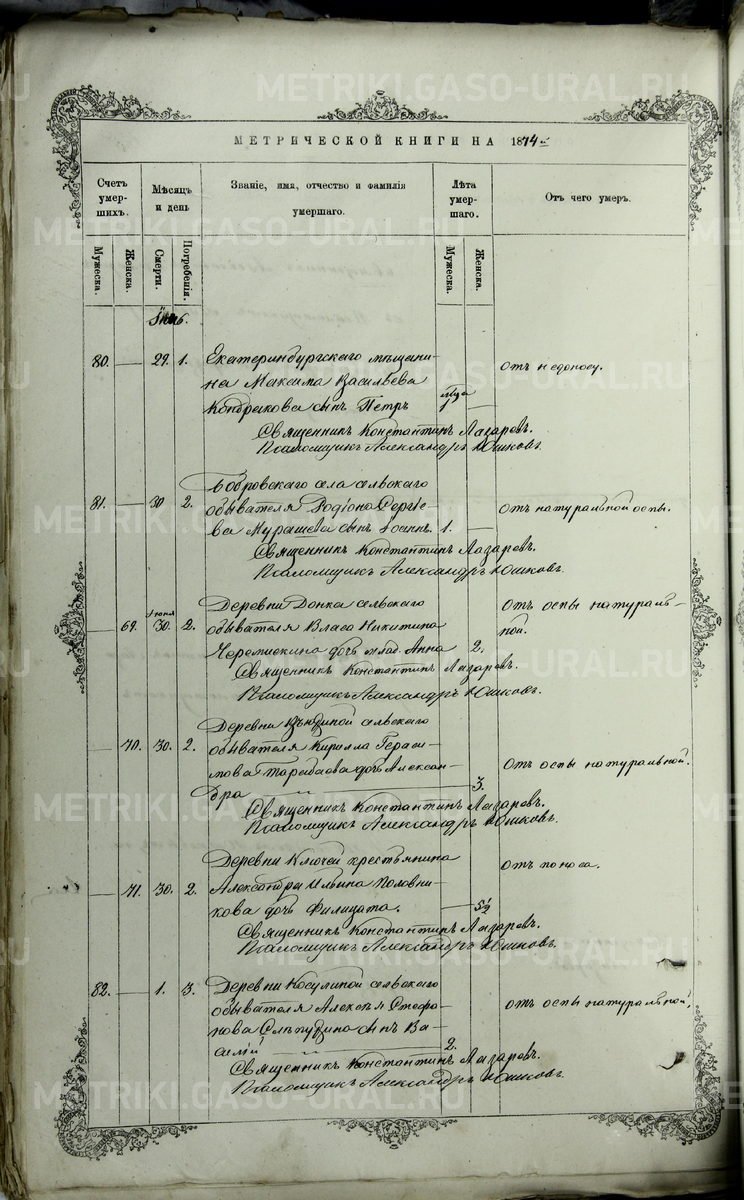 МЕТРИЧЕСКОЙ КНИГИ НА 1874й
Счетъ умер- шихъ.
Мѣсяцъ и день
Званіе, имя, отчество и фамилія умершаго.
Лѣта умер- шаго.
Отъ чего умеръ.
Мужеска.
Женска.
Смерти.
Погребенія.
Мужеска.
Женска.
80. 29. 1. Екатеринбургскаго мѣщани-
на Максима Васильева
Кондракова сынъ Петръ 1 отъ недоносу.
Священникъ Константинъ Лазаревъ.
Псаломщикъ Александръ Юшковъ.
81. 30 2. Бобровскаго села сельскаго
обывателя Родіона Сергѣе-
ва Мурашева сынъ Іоаннъ. 1. отъ натуральной оспы.
Священникъ Константинъ Лазаревъ.
Псаломщикъ Александръ Юшковъ.
69. Іюня 30. 2. Деревни Донка сельскаго
обывателя Власа Никитина
Черемискина дочь млад. Анна 2. Отъ оспы натураль-
ной.
Священникъ Константинъ Лазаревъ.
Псаломщикъ Александръ Юшковъ.
70. 30. 2. Деревни сельскаго
обывателя Кирилла Гераси-
мова дочь Алексан-
дра 3. Отъ оспы натуральной.
Священникъ Константинъ Лазаревъ.
Псаломщикъ Александръ Юшковъ.
71. 30. 2. Деревни Ключей крестьянина
Александра Ильина Половни-
кова дочь Филицата. 5½ отъ поноса.
Священникъ Константинъ Лазаревъ.
Псаломщикъ Александръ Юшковъ.
82. 1. 3. Деревни Косулиной сельскаго
обывателя Алексѣя Стефа-
нова сынъ Ва-
силій 2. отъ оспы натуральной.
Священникъ Константинъ Лазаревъ.
Псаломщикъ Александръ Юшковъ.
METRIKI.GASO-URAL.RU